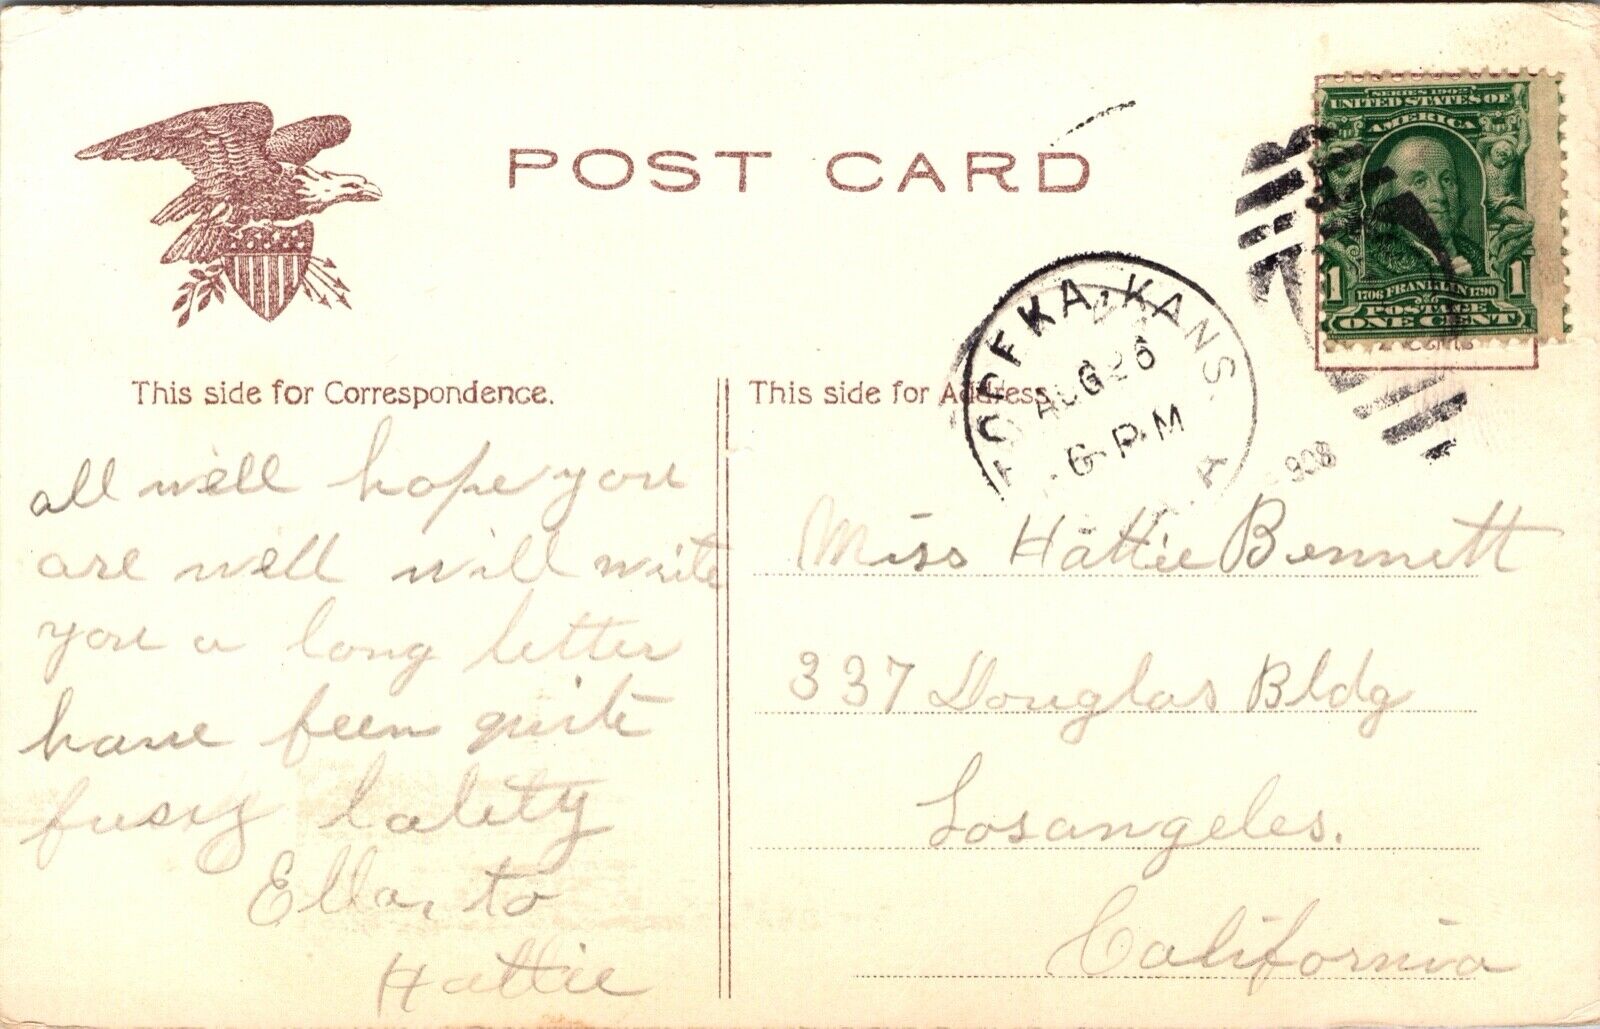 POST CARD
SERIES 1902
UNITED STATES OF
AMERICA
1 1
1706 FRANKLIN 1790
POSTAGE
ONE CENT
TOPEKA, KANS.
AUG 26
6-P.M
1908
This side for Correspondence.
all well hope you
are well will write
you a long letter
have been quite
busy lately
Ella, to
Hattie
This side for Address.
Miss Hattie Bennett
337 Douglas Bldg
Losangeles.
California